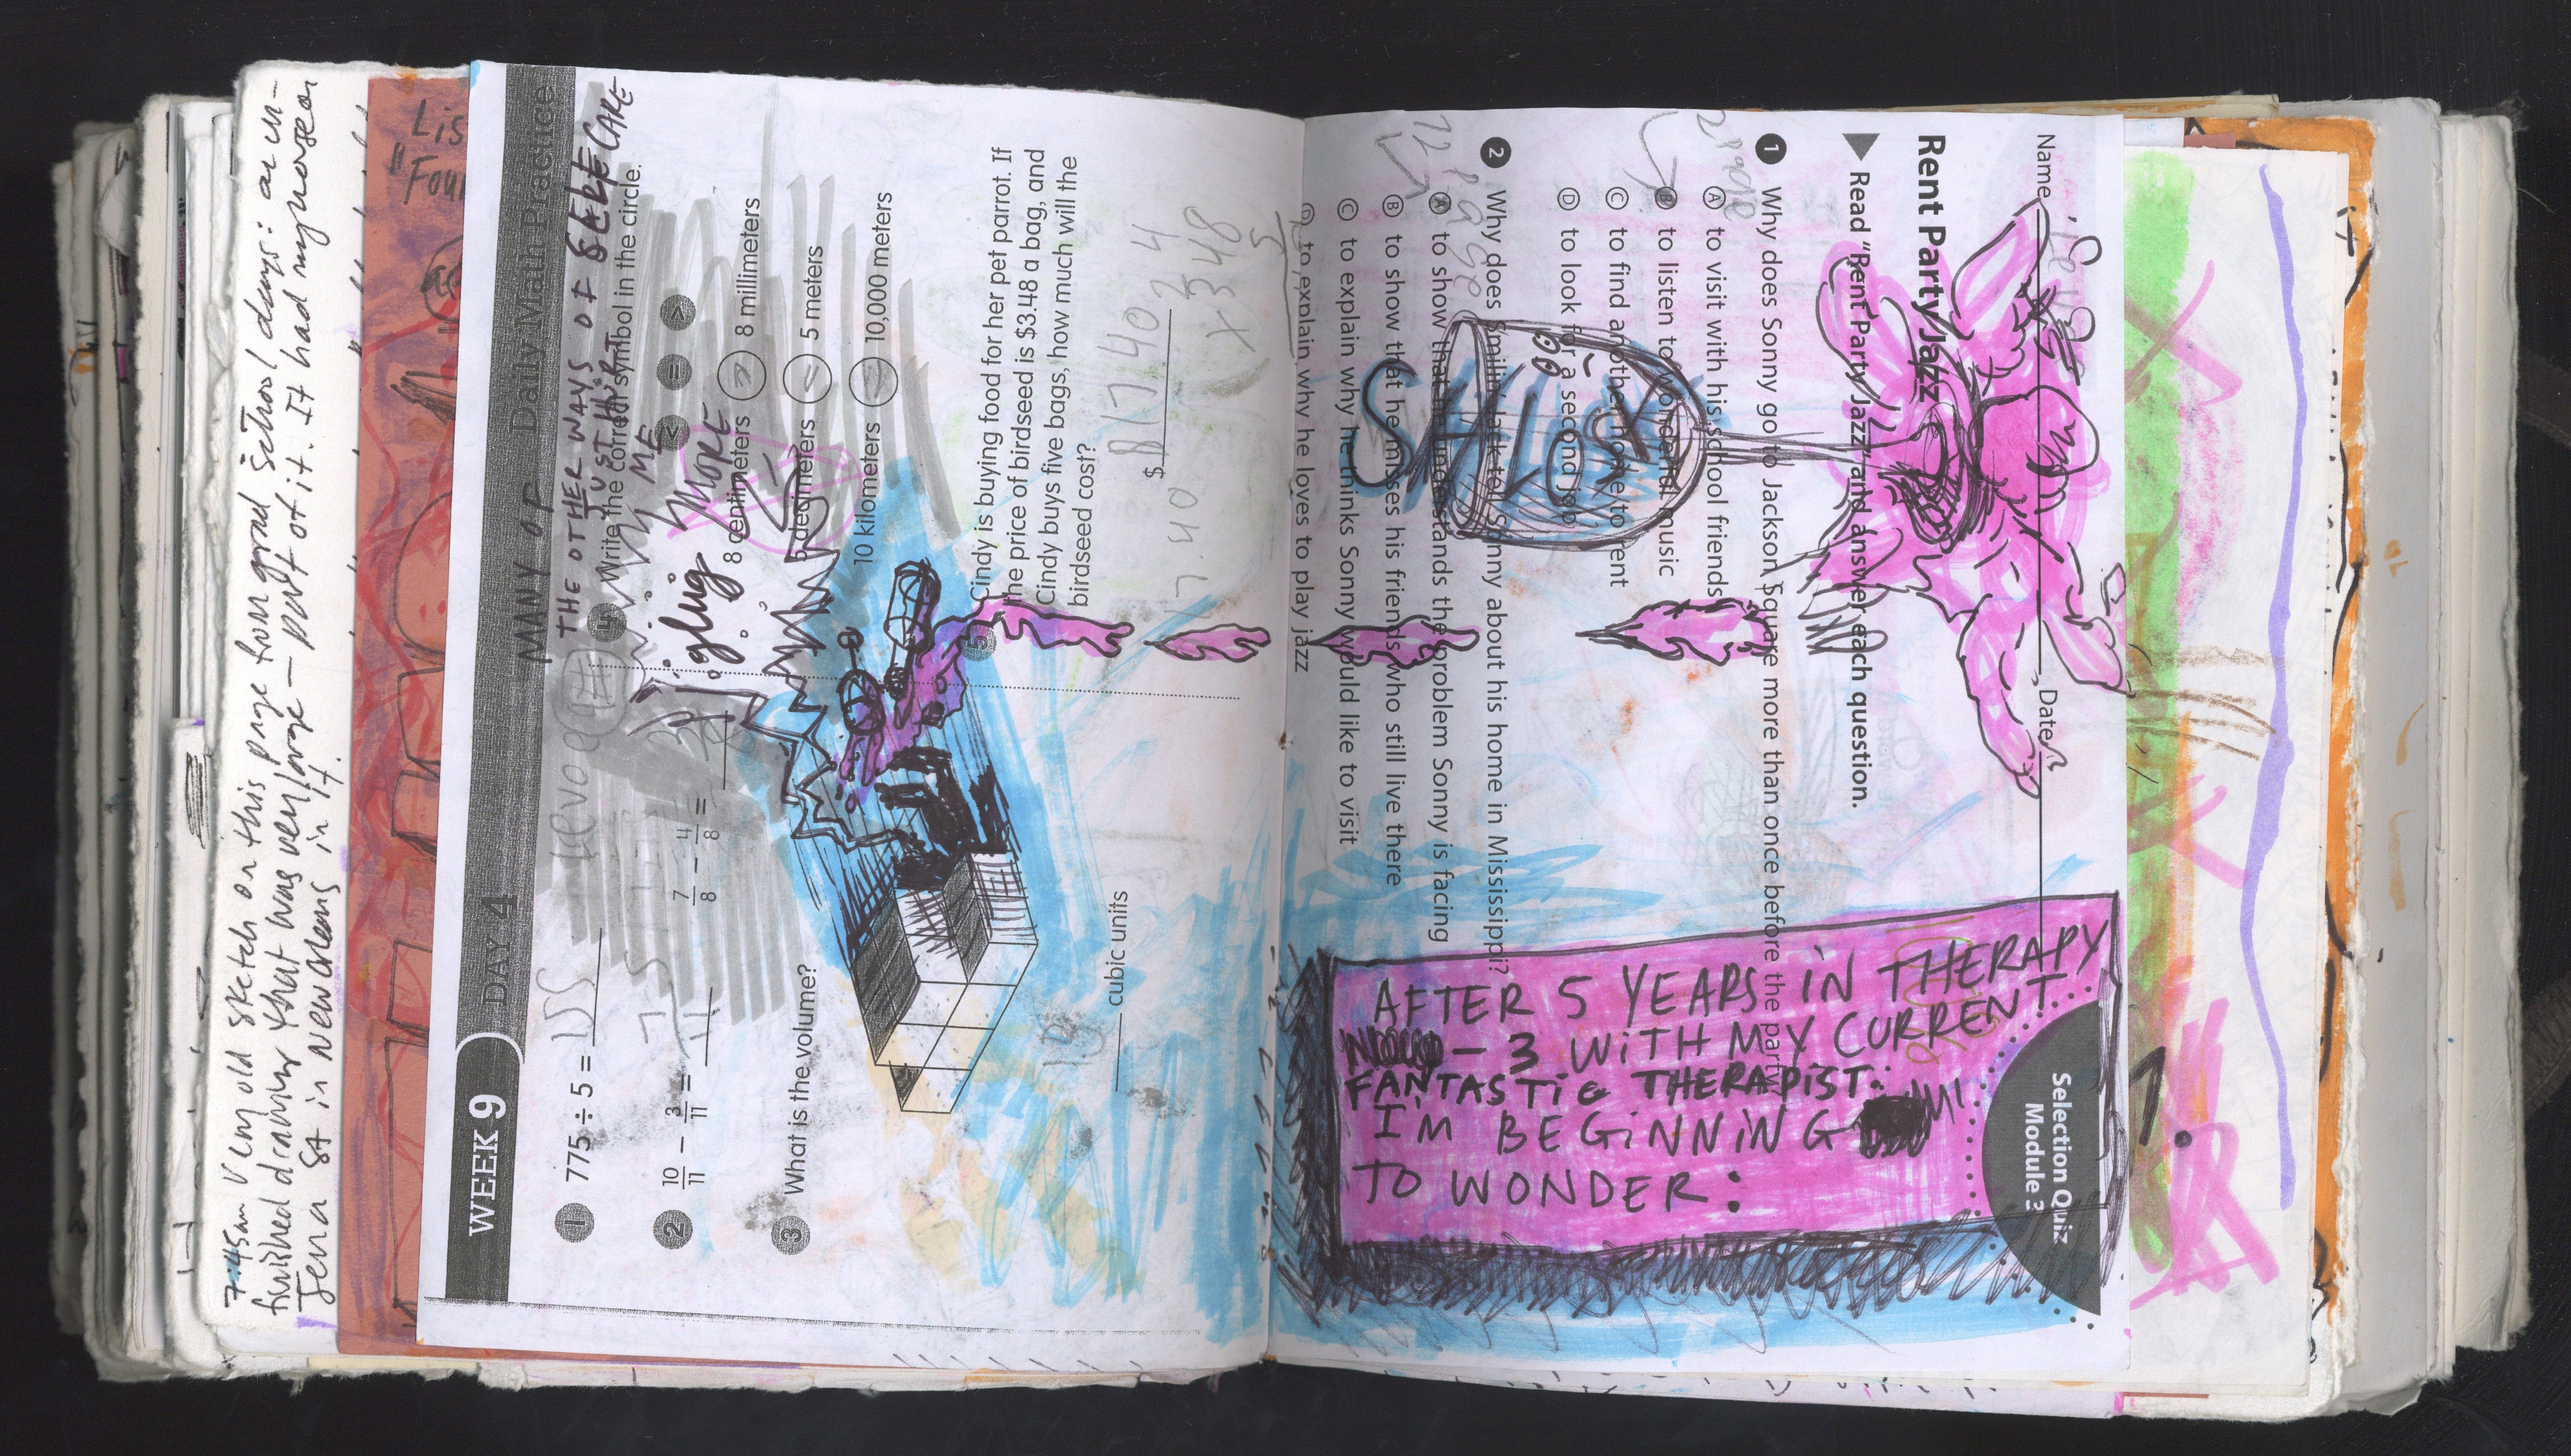 7:45am Very old sketch on this page from grad school days: an un-
finished drawing that was very large — part of it. It had my nose on
Jena St in New Orleans in it.
Lis
"Four
WEEK 9
DAY 4
Daily Math Practice
MANY OF
THE OTHER WAYS OF SELF CARE
JUST HURT
ME
MORE
glug
1 775 ÷ 5 =
2 10/11 − 3/11 =
7/8 − 4/8 =
3 What is the volume?
cubic units
4 Write the correct symbol in the circle.
< = >
8 centimeters 8 millimeters
5 decimeters 5 meters
10 kilometers 10,000 meters
5 Cindy is buying food for her pet parrot. If
the price of birdseed is $3.48 a bag, and
Cindy buys five bags, how much will the
birdseed cost?
$ 17.40
Name
Date
Selection Quiz
Module 3
Rent Party Jazz
Read "Rent Party Jazz" and answer each question.
1 Why does Sonny go to Jackson Square more than once before the party?
A to visit with his school friends
B to listen to wonderful music
C to find another home to rent
D to look for a second job
2 Why does Smilin' Jack tell Sonny about his home in Mississippi?
A to show that he understands the problem Sonny is facing
B to show that he misses his friends who still live there
C to explain why he thinks Sonny would like to visit
D to explain why he loves to play jazz
AFTER 5 YEARS IN THERAPY
— 3 WITH MY CURRENT
FANTASTIC THERAPIST:
I'M BEGINNING
TO WONDER: